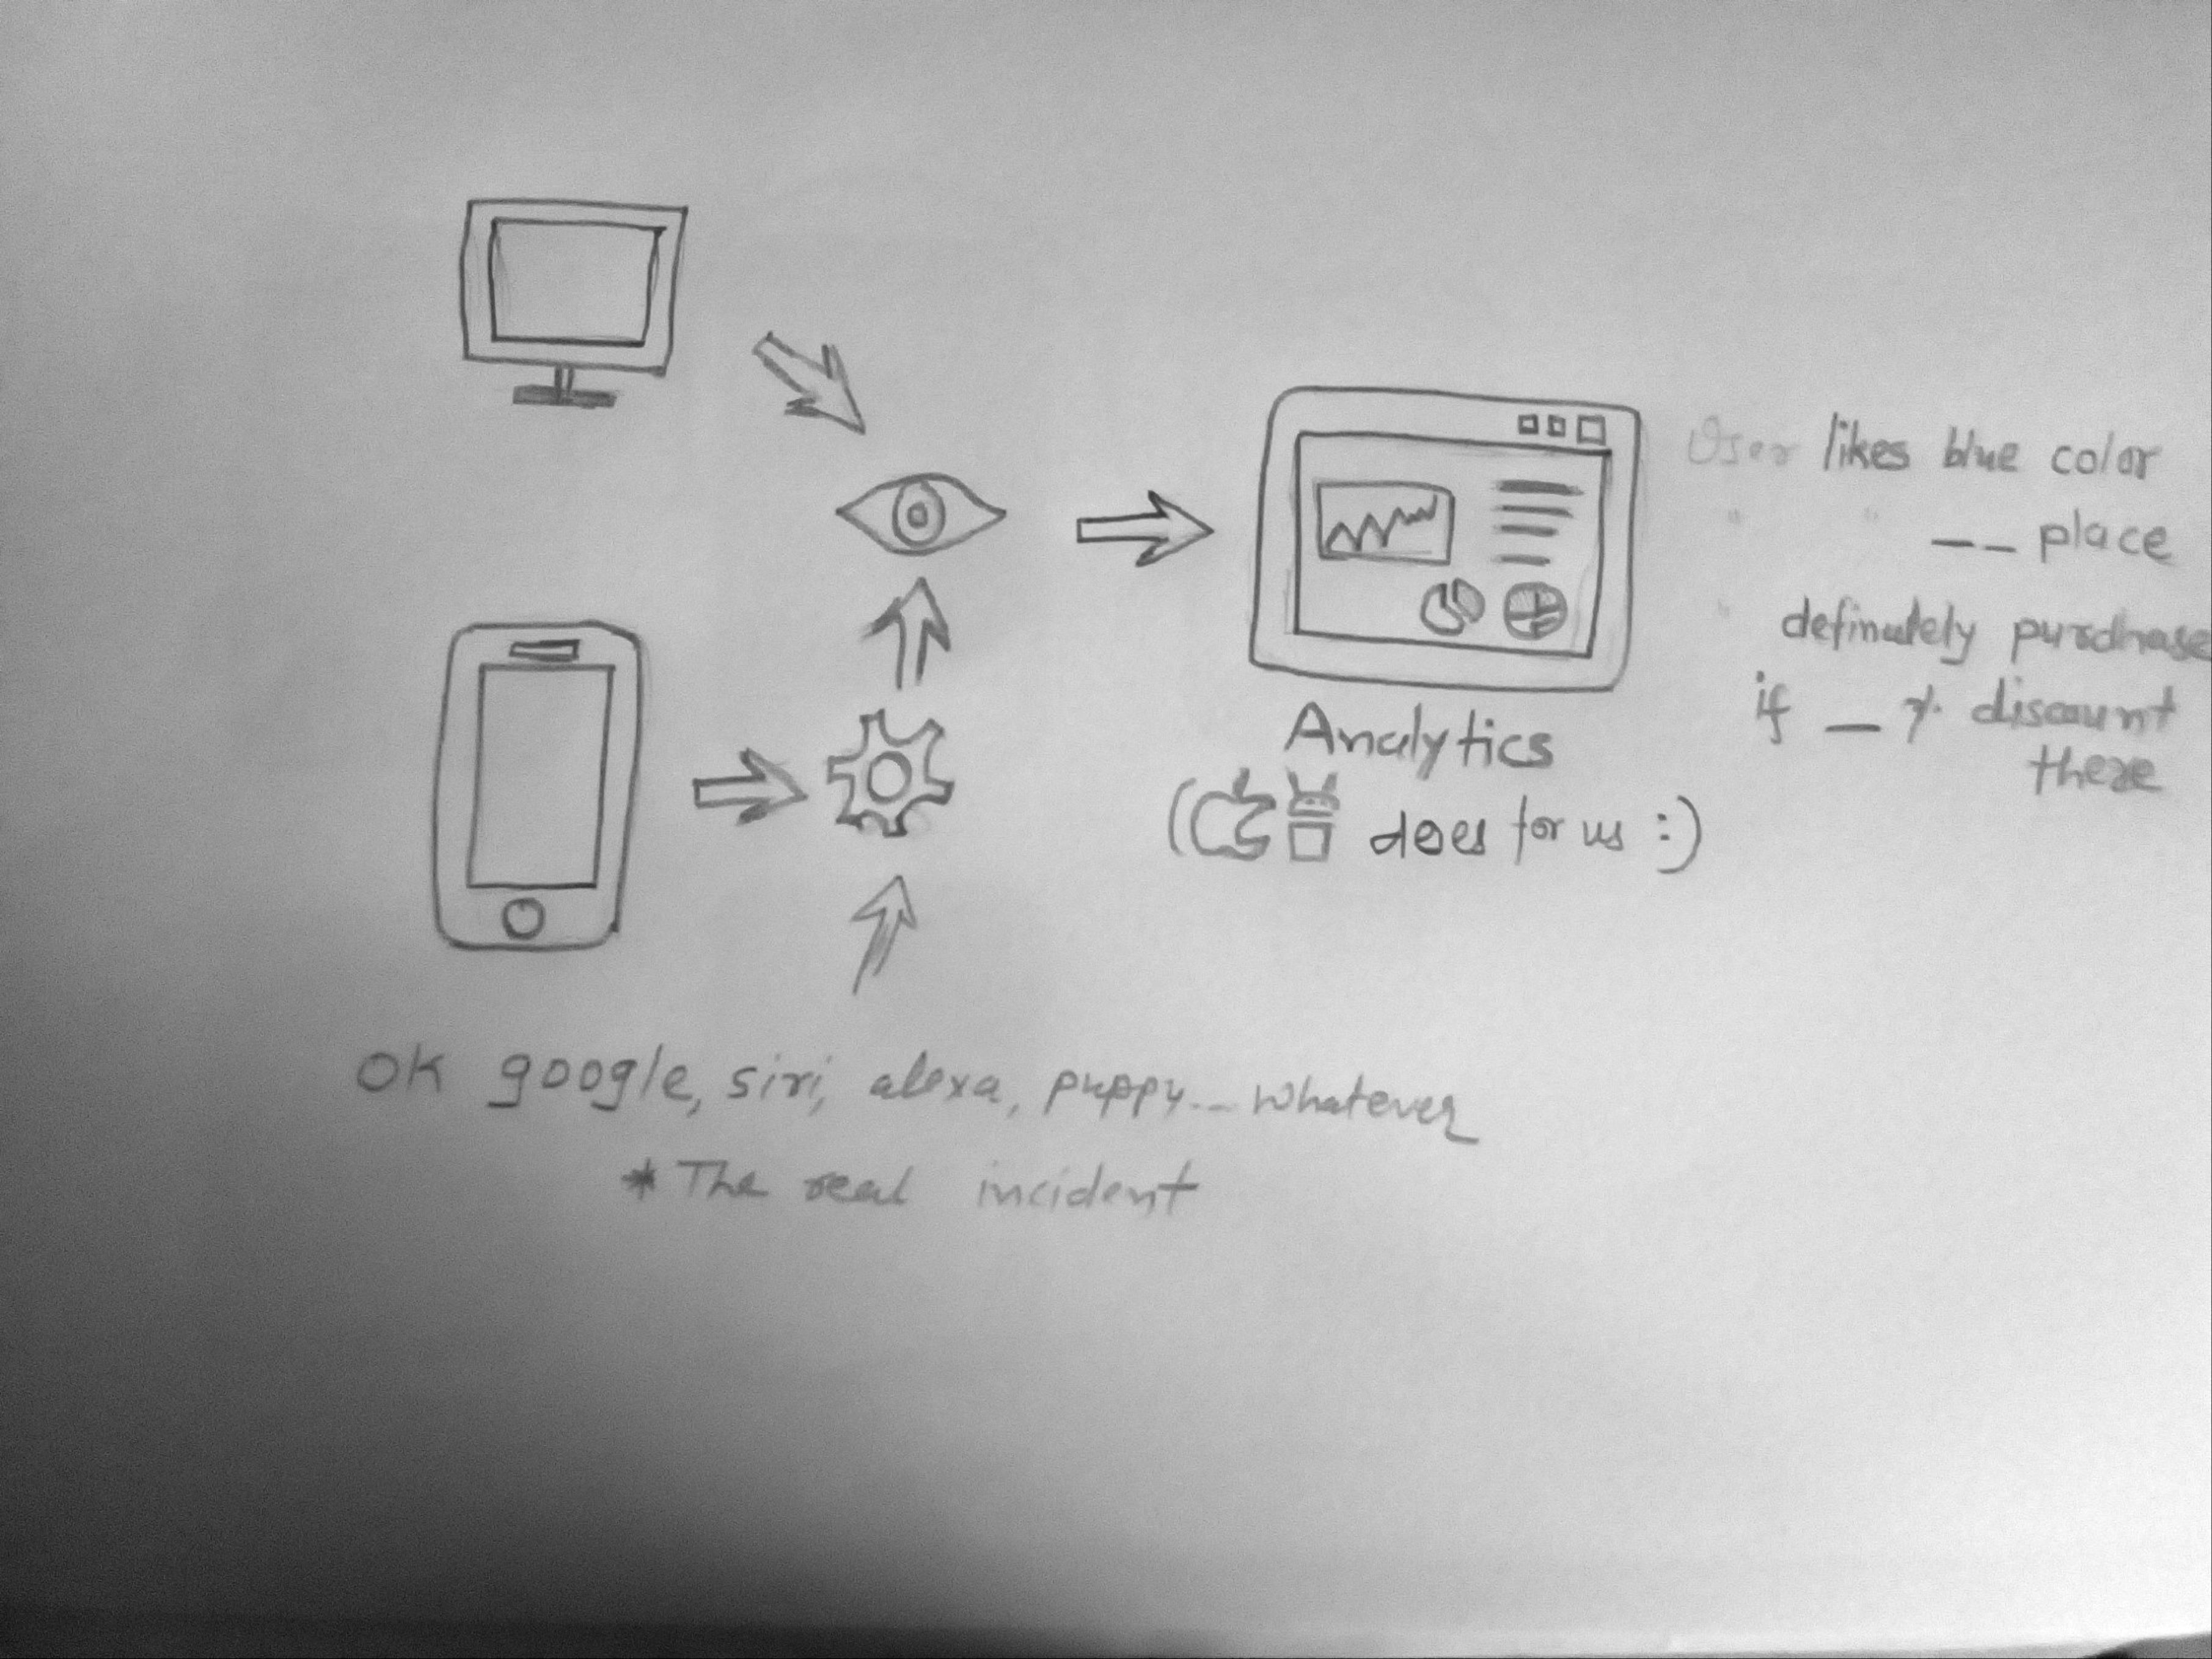 User likes blue color
" " __ place
" definately purchase
if _ % discount
there
Analytics
( does for us :)
OK google, siri, alexa, puppy... whatever
* The real incident